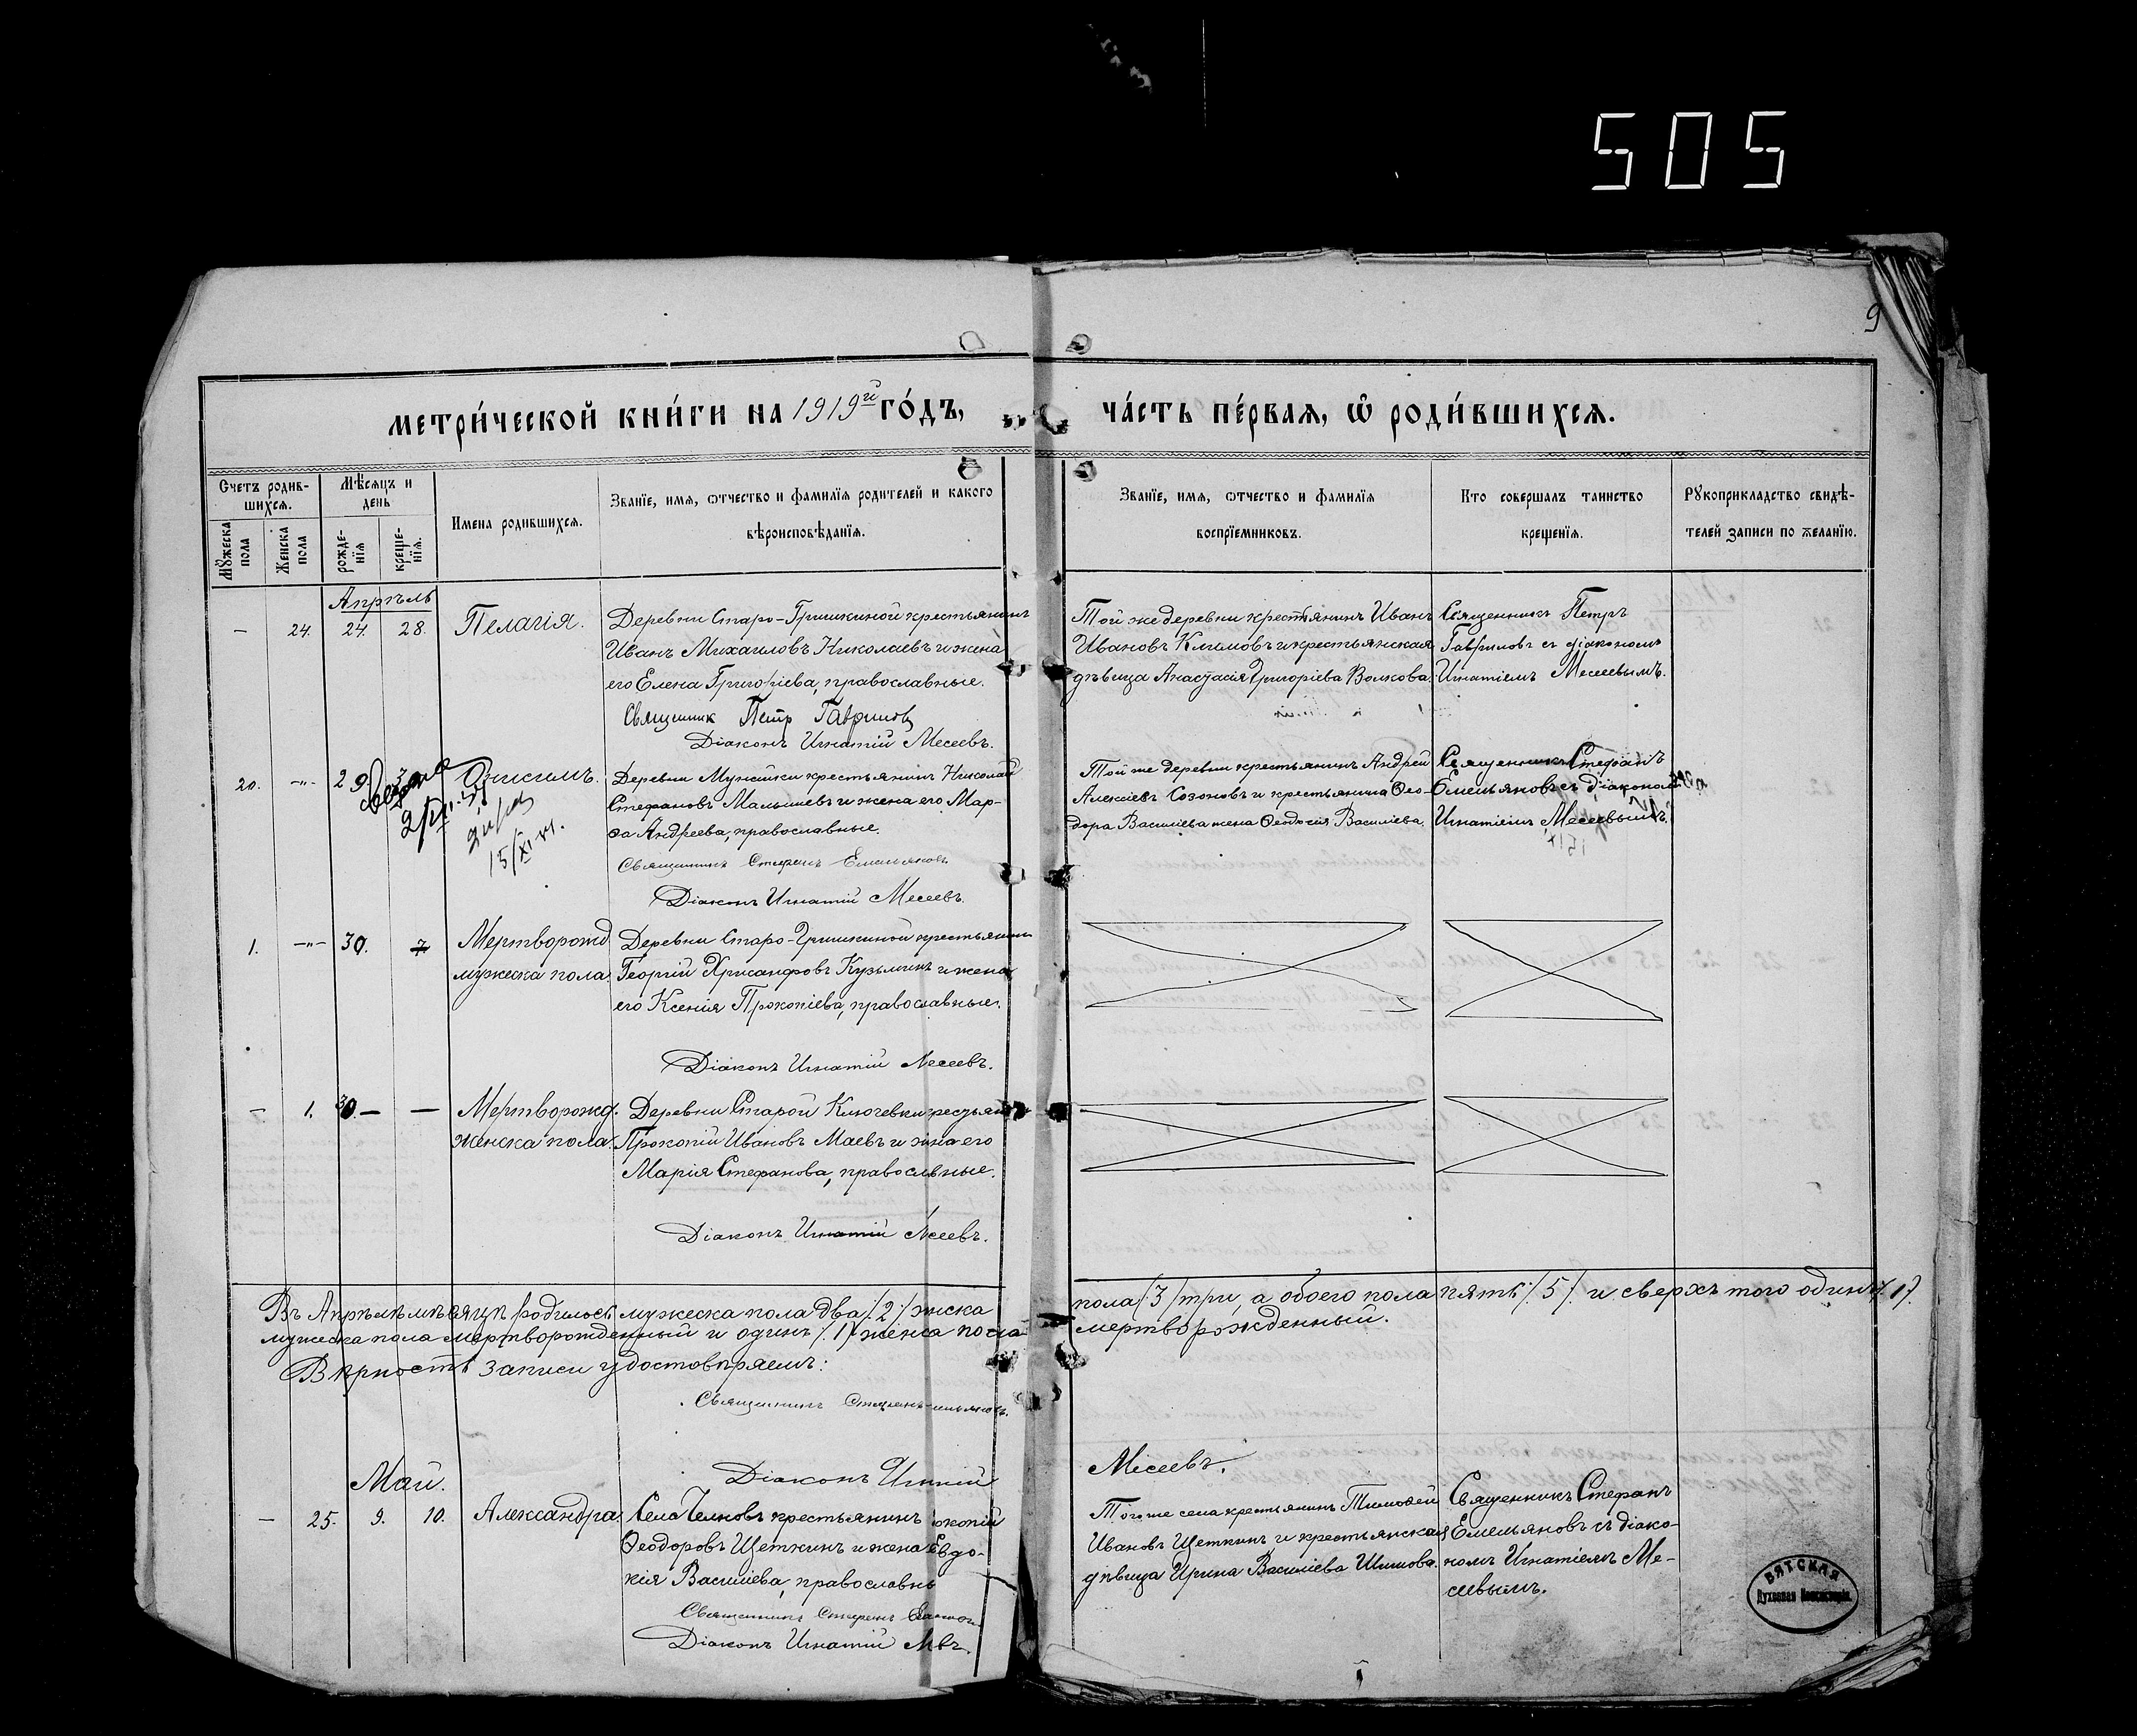 505
9
метри́ческой кни́ги на 1919й го́дъ,
ча́сть пе́рвая, ѿ роди́вшихся.
Счетъ родив-
шихся.
Мѣсяцъ и
день
Имена родившихся.
Званїе, имя, ѿтчество и фамилїя родителей и какого
вѣроисповѣданїя.
Мꙋжеска
пола
Женска
пола
рожде-
нїя
креще-
нїя.
Званїе, имя, ѿтчество и фамилїя
воспрїемниковъ.
Кто совершалъ таинство
крещенїя.
Рꙋкоприкладство свидѣ-
телей записи по желанїю.
Апрѣль
— 24. 24. 28. Пелагія.
Деревни Старо-Гришкиной крестьянинъ
Иванъ Михаиловъ Николаевъ и жена
его Елена Григоріева, православные.
Священник Петр Гаврилов
Діаконъ Игнатій Месеевъ.
Той же деревни крестьянинъ Иванъ
Ивановъ Климовъ и крестьянская
дѣвица Анастасія Григоріева Волкова.
Священникъ Петръ
Гавриловъ съ діакономъ
Игнатіемъ Месеевымъ.
20. —"— 29. Онисимъ.
2/VI
15/XI
Деревни Мужѝки крестьянинъ Николай
Стефановъ Малышевъ и жена его Мар-
ѳа Андреева, православные.
Священникъ Стефанъ Емельяновъ
Діаконъ Игнатій Месеевъ.
Той же деревни крестьянинъ Андрей
Алексіевъ Созоновъ и крестьянина Ѳео-
дора Василіева жена Ѳеодосія Василіева.
Священникъ Стефанъ
Емельяновъ съ діакономъ
Игнатіемъ Месеевымъ.
1. —"— 30. Мертворожд
мужеска пола.
Деревни Старо-Гришкиной крестьянинъ
Георгій Хрисанфовъ Кузьминъ и жена
его Ксенія Прокопіева, православные.
Діаконъ Игнатій Месеевъ.
— 1. 30. — — Мертворожд.
женска пола.
Деревни Старой Ключевки крестьян
Прокопій Ивановъ Маевъ и жна его
Марія Стефанова, правослвные.
Діаконъ Игнатій Месеевъ.
Въ Апрѣлѣ мѣсяцѣ родилось мужеска пола два /2/ жнска
мужеска пола мертворожденный и одинъ /.1/ женска пола
Вѣрность записи удостовѣряемъ:
Священникъ Стефанъ
Діаконъ
пола /3/ три, а обоего пола пять /.5/. и сверхъ того одинъ /.1/.
мертворожденный.
Месеевъ.
Май.
— 25. 9. 10. Александра.
Села Челновъ крестьянинъ окопій
Ѳеодоровъ Щеткинъ и жена Евдо-
кія Василіева, православн
Священникъ Стефанъ
Діаконъ Игнатій
Того же села крестьянинъ Тимоѳей
Ивановъ Щеткинъ и крестьянская
дѣвица Ирина Василіева Шишова.
Священникъ Стефанъ
Емельяновъ съ діако-
номъ Игнатіемъ Ме-
сеевымъ.
ВЯТСКАЯ
Духовная Консисторія.